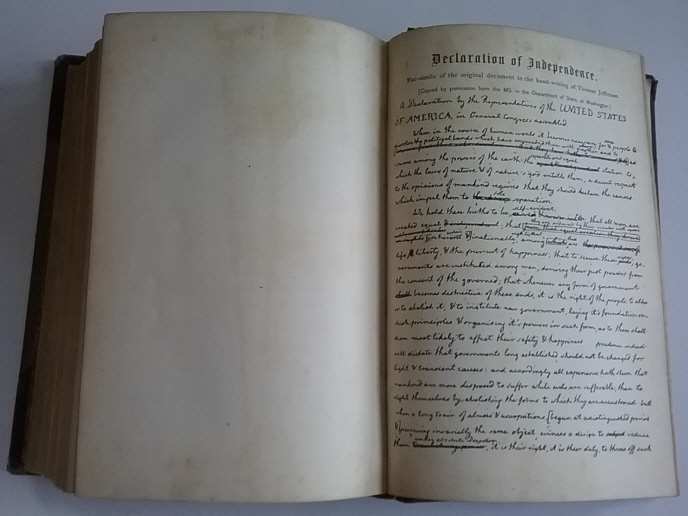 Declaration of Independence.
Fac-simile of the original document in the hand-writing of Thomas Jefferson.
[Copied by permission from the MS. in the Department of State, at Washington.]
A Declaration by the Representatives of the UNITED STATES
OF AMERICA, in General Congress assembled
When in the course of human events it becomes necessary for people to
dissolve the political bands which have connected them with another, and to
-sume among the powers of the earth the separate and equal station to
which the laws of nature & of nature's god entitle them, a decent respect
to the opinions of mankind requires that they should declare the causes
which impel them to the separation.
We hold these truths to be self-evident; that all men are
created equal
life, liberty, & the pursuit of happiness; that to secure these rights, go-
vernments are instituted among men, deriving their just powers from
the consent of the governed; that whenever any form of government
becomes destructive of these ends, it is the right of the people to alter
or to abolish it, & to institute new government, laying it's foundation on
such principles & organising it's powers in such form, as to them shall
seem most likely to effect their safety & happiness. prudence indeed
will dictate that governments long established should not be changed for
light & transient causes: and accordingly all experience hath shewn that
mankind are more disposed to suffer while evils are sufferable, than to
right themselves by abolishing the forms to which they are accustomed. but
when a long train of abuses & usurpations [begun at a distinguished period
& pursuing invariably the same object, evinces a design to reduce
them under absolute Despotism, it is their right, it is their duty, to throw off such